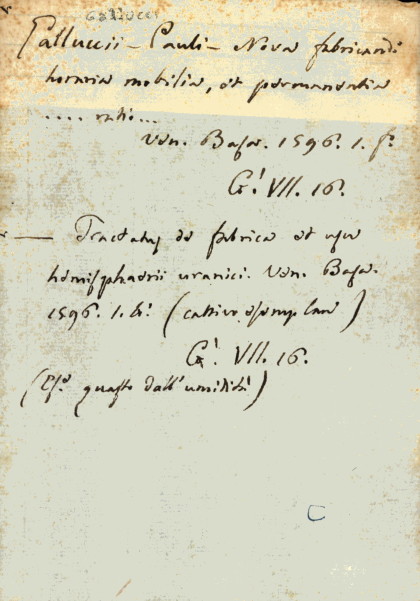 Gallucci
Galluccii - Pauli - Nova fabricandi
horaria mobilia, et permanentia
.... ratio...
Ven. Basa. 1596. 1. f.º
G! VII. 16.
— Tractatus de fabrica et usu
hemisphaerii uranici. Ven. Basa.
1596. 1.
(cattivo esemplare)
G! VII. 16.
(Es.e guasto dall'umidità)
C